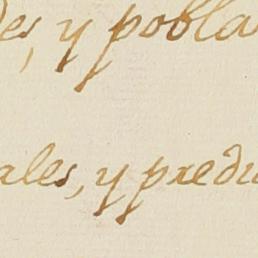 des, y pobla
ales, y predi